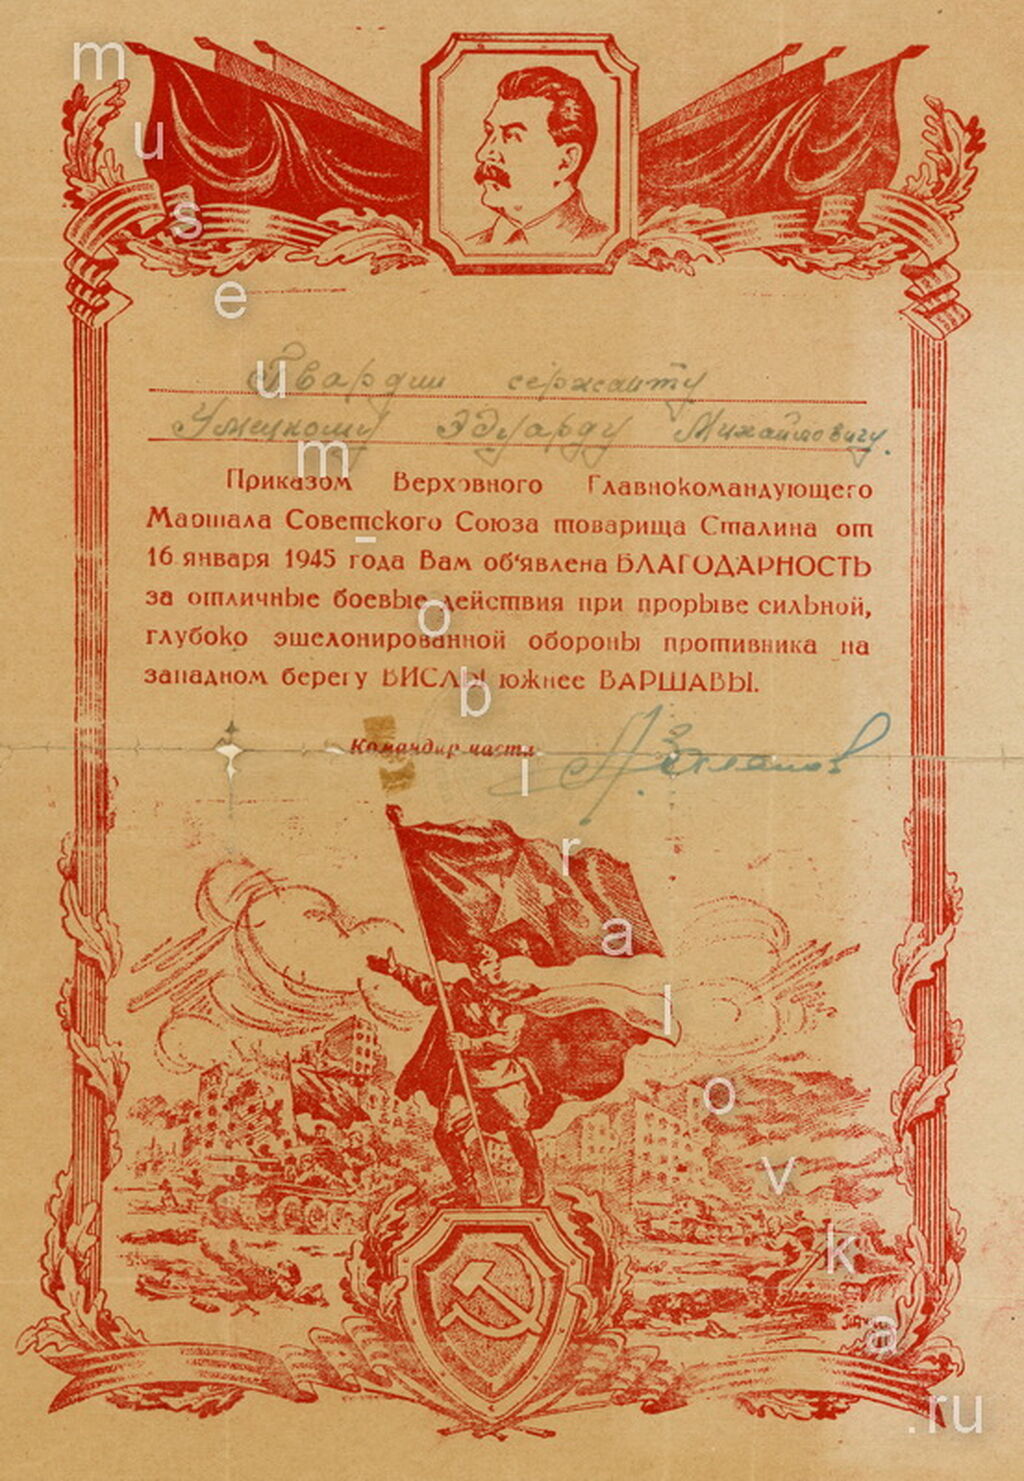 Гвардии сержанту
Умецкому Эдуарду Михайловичу.
Приказом Верховного Главнокомандующего
Маршала Советского Союза товарища Сталина от
16 января 1945 года Вам об‘явлена БЛАГОДАРНОСТЬ
за отличные боевые действия при прорыве сильной,
глубоко эшелонированной обороны противника на
западном берегу ВИСЛЫ южнее ВАРШАВЫ.
Командир части
museum_obiralovka.ru